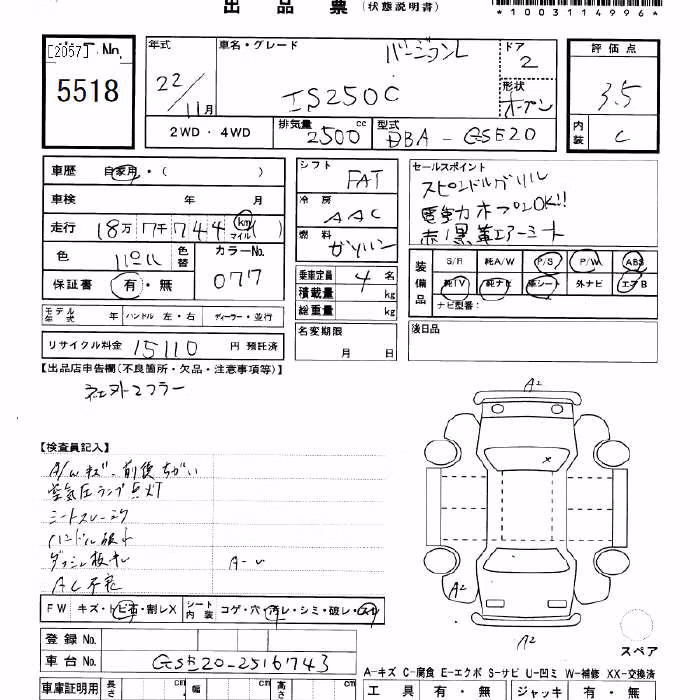 出品票（状態説明書）
*1003114996*
[2057] No.
5518
年式 22/11月
車名・グレード バージョンL
IS250C
ドア 2
形状 オープン
評価点 3.5
内装 C
2WD・4WD
排気量 2500 cc
型式 DBA-GSE20
車歴 自家用・( )
車検 年 月
走行 18万7千744 (km マイル)
色 パール
色替
カラーNo. 077
保証書 有・無
シフト FAT
冷房 AAC
燃料 ガソリン
乗車定員 4名
積載量 kg
総重量 kg
セールスポイント
スピンドルグリル
電動オープンOK!!
赤/黒革エアーシート
装備品 S/R 純A/W P/S P/W ABS
純TV 純ナビ 革シート 外ナビ エアB
ナビ型番:
モデル年式 年 ハンドル 左・右 ディーラー・並行
名変期限 月 日
後日品
リサイクル料金 15110 円 預託済
【出品店申告欄(不良箇所・欠品・注意事項等)】
社外マフラー
【検査員記入】
A/Wキズ 前後ちがい
空気圧ランプ点灯
シートスレ
ハンドル
ダッシュ板キレ
AC不充
A-U
A2
A2
A2
FW キズ・トビ石・割レX
シート内装 コゲ・穴・汚レ・シミ・破レ・スレ
登録No.
車台No. GSE20-2516743
スペア
A-キズ C-腐食 E-エクボ S-サビ U-凹ミ W-補修 XX-交換済
車庫証明用 長さ cm 幅 cm 高さ cm
工具 有・無 ジャッキ 有・無